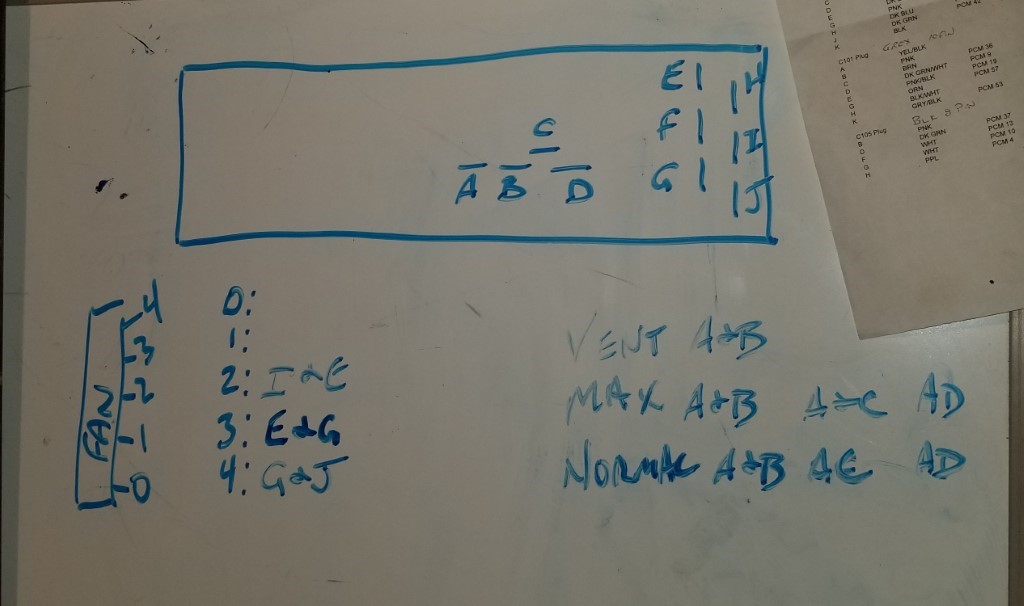 E H
C F I
A B D G J
FAN
4
3
2
1
0
0:
1:
2: I & E
3: E & G
4: G & J
VENT A & B
MAX A & B A & C AD
NORMAL A & B AC AD
PNK
DK BLU
DK GRN
BLK
C101 Plug GREY 10 PIN
A YEL/BLK PCM 36
B PNK PCM 9
C BRN PCM 19
D DK GRN/WHT PCM 57
E PNK/BLK
G ORN PCM 53
H BLK/WHT
K GRY/BLK
BLK 8 PIN
C105 Plug PNK PCM 37
B DK GRN PCM 13
D WHT PCM 10
F WHT PCM 4
G PPL
H